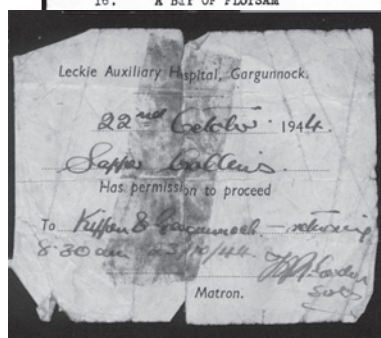 16. A BIT OF FLOTSAM
Leckie Auxiliary Hospital, Gargunnock.
22nd October 1944.
Sapper Collins.
Has permission to proceed
To Kippen & Gargunnock — returning
8.30am 23/10/44
Matron.